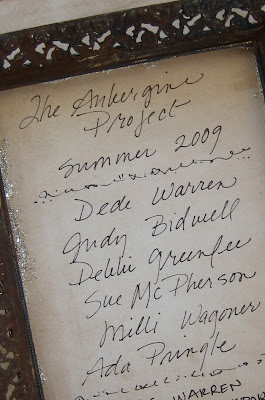 The Aubergine
Project
Summer 2009
Dede Warren
Judy Bidwell
Debbi Greenlee
Sue McPherson
Milli Wagoner
Ada Pringle
WARREN